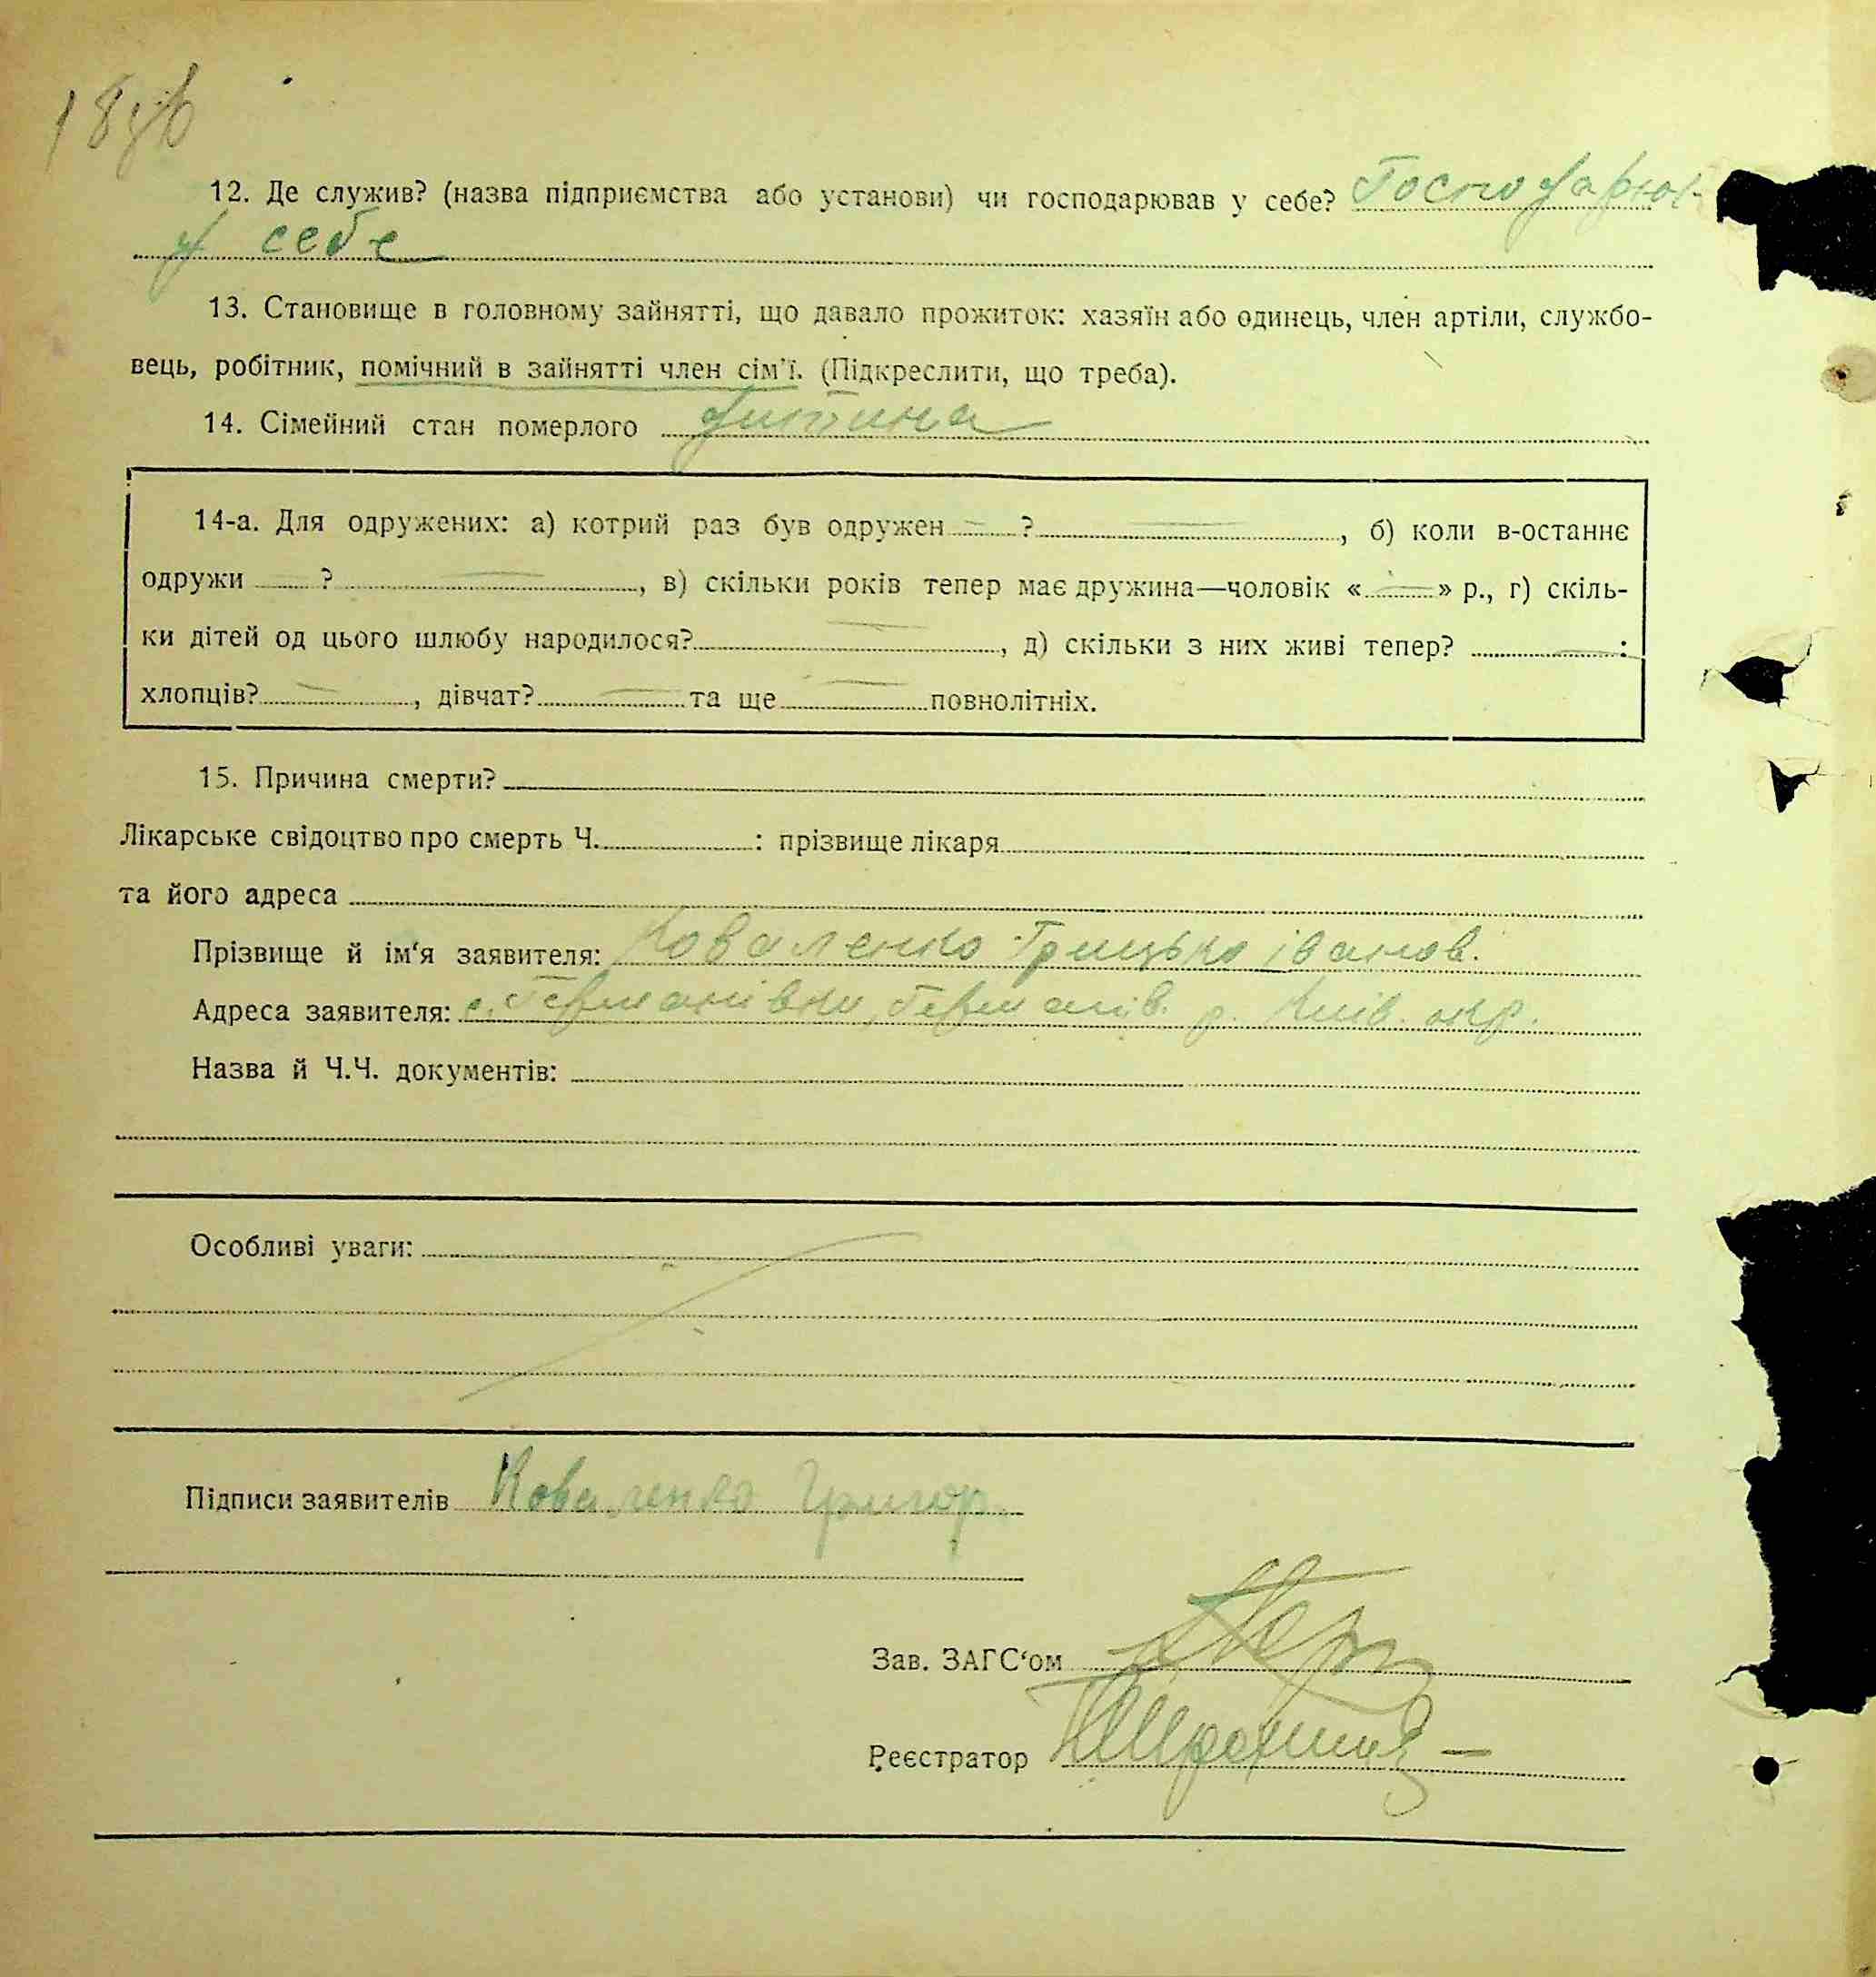 18
12. Де служив? (назва підприємства або установи) чи господарював у себе? Господарює
у себе
13. Становище в головному зайнятті, що давало прожиток: хазяїн або одинець, член артіли, службо-
вець, робітник, помічний в зайнятті член сім'ї. (Підкреслити, що треба).
14. Сімейний стан померлого дитина
14-а. Для одружених: а) котрий раз був одружен — ? —, б) коли в-останнє
одружи ? —, в) скільки років тепер має дружина—чоловік «—» р., г) скіль-
ки дітей од цього шлюбу народилося? —, д) скільки з них живі тепер? — :
хлопців? —, дівчат? — та ще — повнолітніх.
15. Причина смерти?
Лікарське свідоцтво про смерть Ч. : прізвище лікаря
та його адреса
Прізвище й ім'я заявителя: Коваленко Грицько Іванов.
Адреса заявителя: с. Германівки, Герман​ів. р. Київ. окр.
Назва й Ч.Ч. документів:
Особливі уваги:
Підписи заявителів Коваленко Григор.
Зав. ЗАГС'ом
Реєстратор